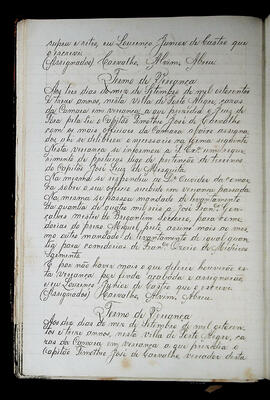 supra escrito, eu Lourenço Junior de Castro que
o escrevi
(Assignados) Carvalho, Alvim, Abreu
Termo de Vereança
Aos tres dias do mez de Setembro de mil oitocentos
e treze annos, nesta villa de Porto Alegre, casas
da Camara em vereança a que prezidia o Juiz de
Fóra pela lei o Capitão Timotheo José de Carvalho
com os mais officiaes da Camara abaixo assigna-
dos ahi se deliberou o necessario na forma seguinte
Nesta vereança se informou a S. Ex.ª um reque-
rimento de
do Capitão José Luiz de Mesquita
Na mesma se respondeu ao D.or Ouvidor da comar
ca sobre o seu officio recebido em vereança passada
Na mesma se passou mandado de levantamento
da quantia de quatro mil reis a José Fran.co Gon-
çalves mestre do Bergantim para come-
dorias do preso Miguel, preto, assim mais ao mes-
mo outro mandado de levantamento de igual quan
tia para comedorias de Fran.co Ozorio de
E por não haver mais a que deferir houverão es-
ta vereança por finda acabada e assignarão
e eu Lourenço Junior de Castro que o escrevi
(Assignados) Carvalho, Alvim, Abreu
Termo de Vereança
Aos dez dias do mez de Setembro de mil oitocen-
tos e treze annos, nesta villa de Porto Alegre, ca
sas da Camara em vereança a que prezidia o
Capitão Timotheo José de Carvalho vereador desta